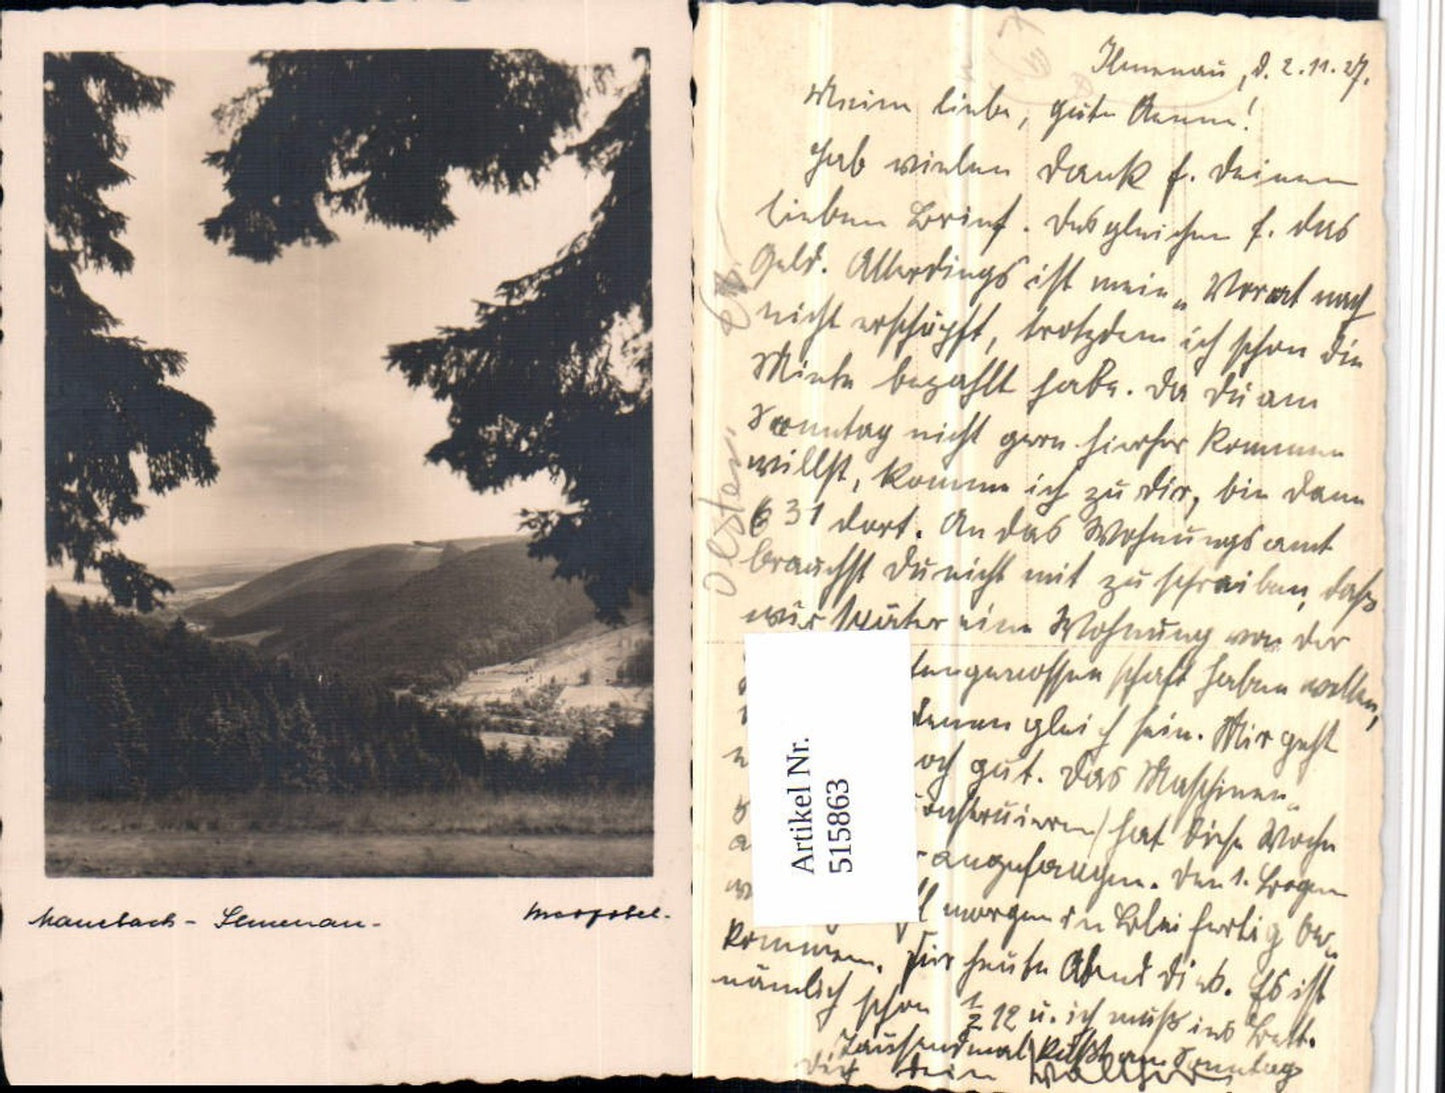 Manebach - Ilmenau -
Ilmenau, d. 2.11.27.
Meine liebe, gute Aenne!
Hab vielen Dank f. Deinen
lieben Brief. Desgleichen f. das
Geld. Allerdings ist mein Vorrat noch
nicht erschöpft, trotzdem ich schon die
Miete bezahlt habe. Da Du am
Sonntag nicht gern hierher kommen
willst, komme ich zu Dir, bin dann
6 31 dort. An das Wohnungsamt
brauchst Du nicht mit zu schreiben, daß
wir später eine Wohnung von der
tengenossenschaft haben wollen,
denen gleich sein. Mir geht
och gut. Das Maschinen-
onstruieren) hat diese Woche
angefangen. Den 1. Bogen
morgen in Blei fertig be-
kommen. Für heute Abend dies. Es ist
nämlich schon 1/2 12 u. ich muß ins Bett.
Tausendmal küßt am Sonntag
Dich Dein
Artikel Nr.
515863